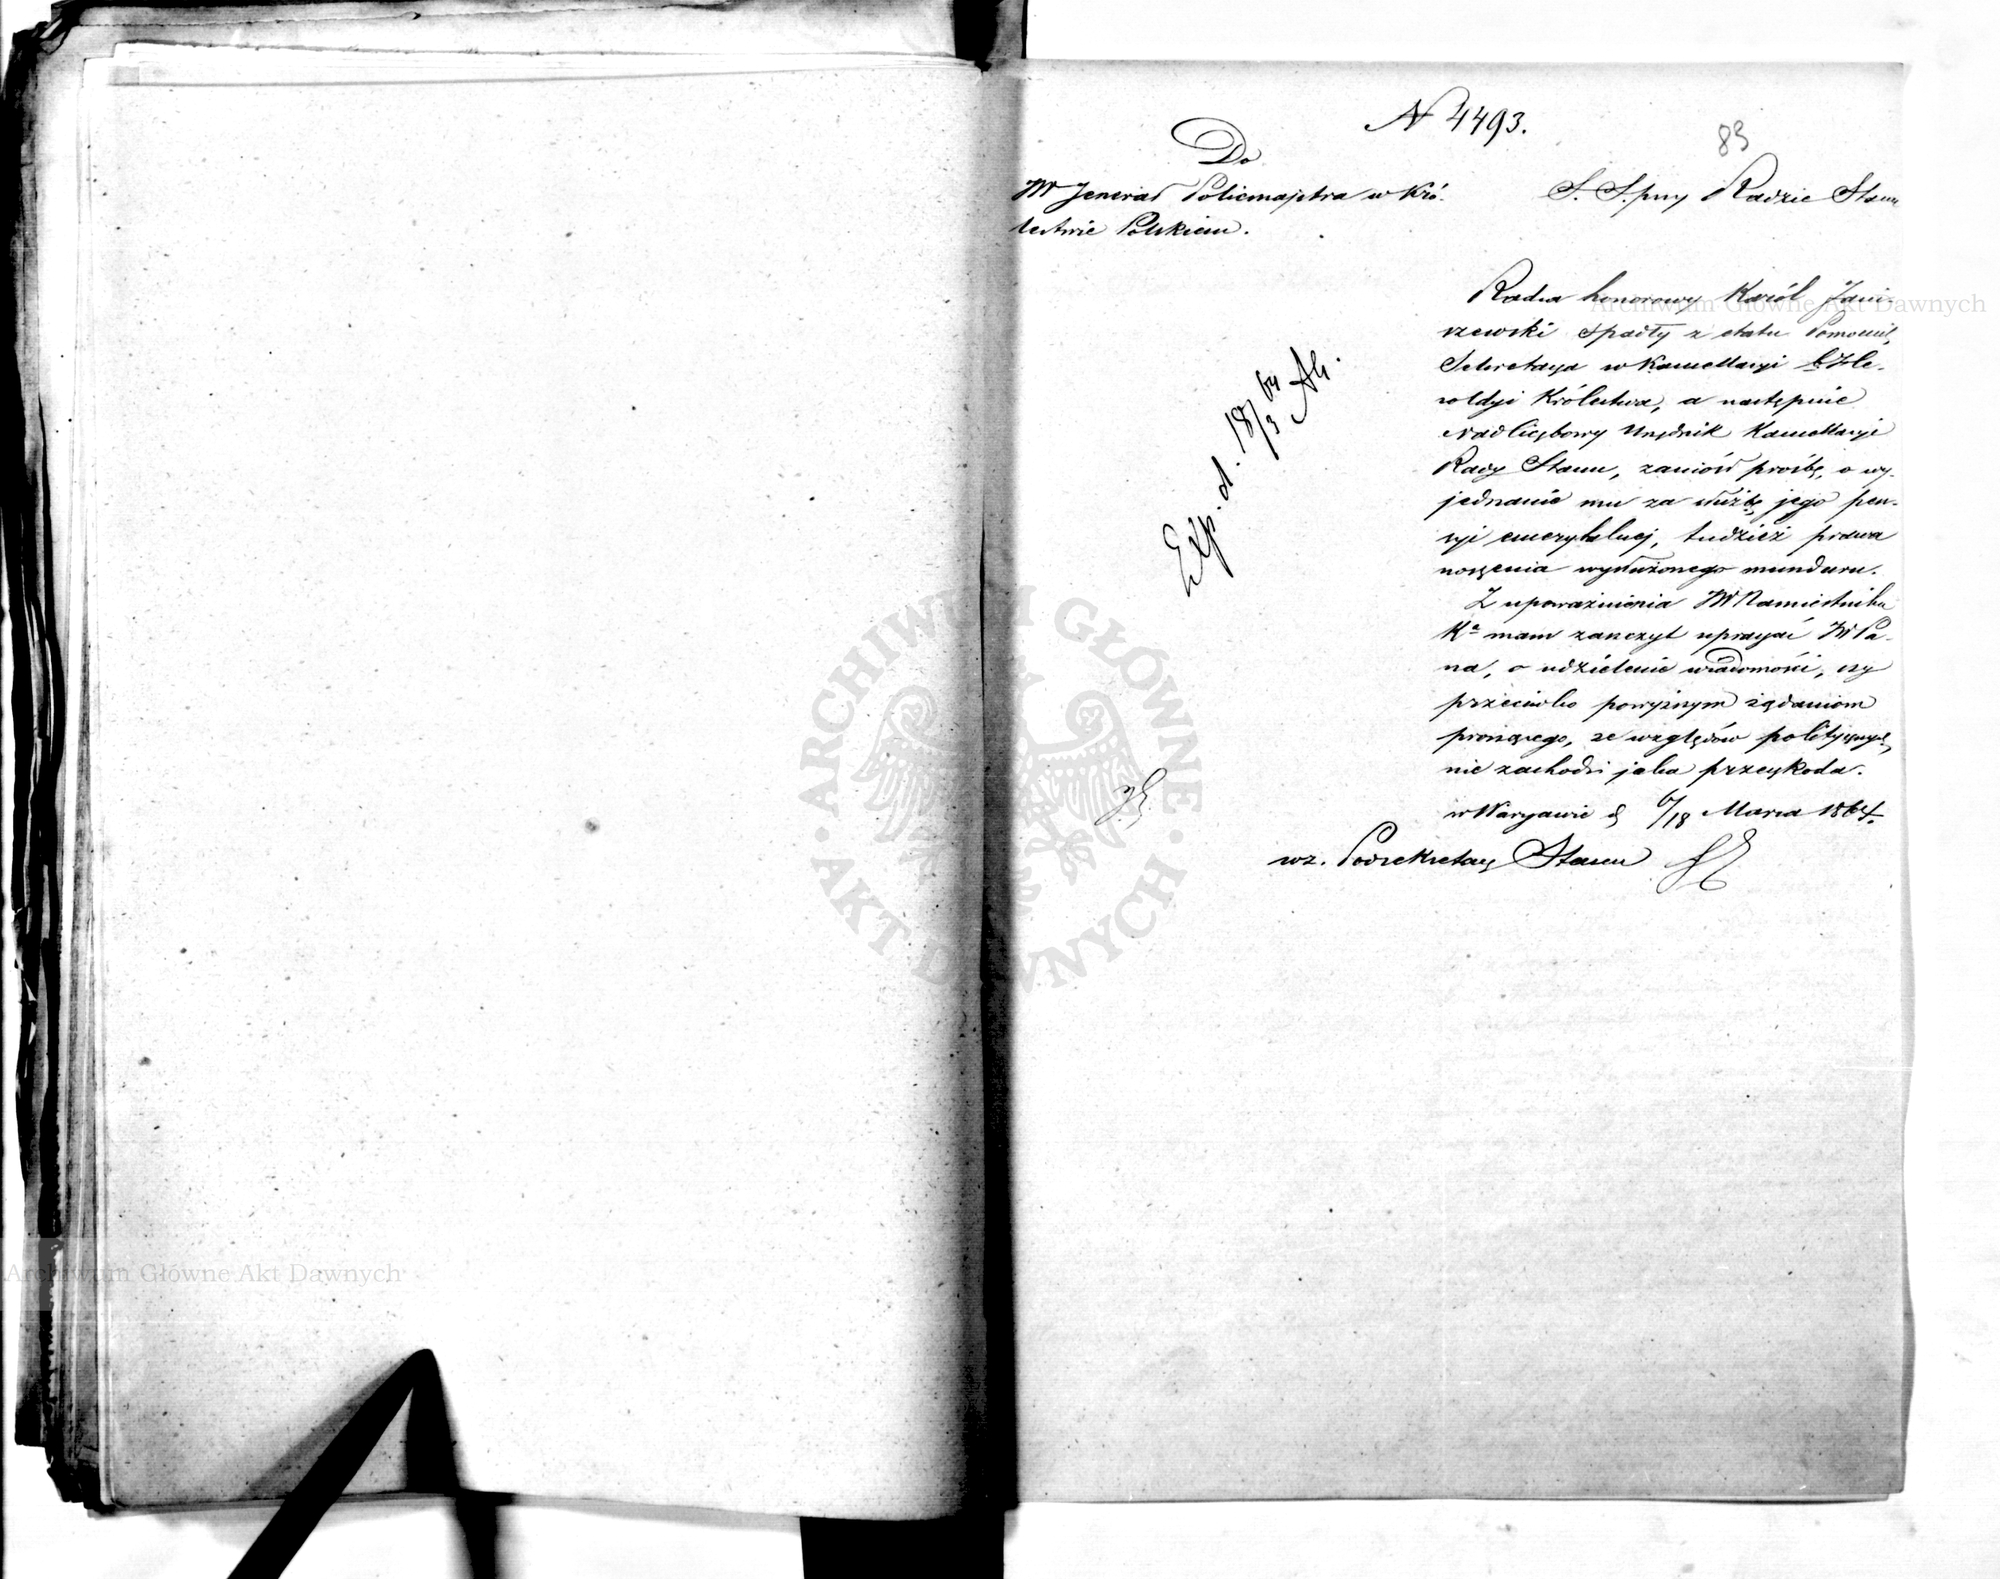 N 4493.
83
Do
JW Jenerał Policmajstra w Kró-
lestwie Polskiem.
S. S. przy Radzie Stanu
Radca honorowy Karól Jani-
szewski spadły z etatu Pomocnik
Sekretarza w Kancellaryi b. He-
roldyi Królestwa, a następnie
Nadliczbowy Urzędnik Kancellaryi
Rady Stanu, zaniósł prośbę, o wy-
jednanie mu za służbę jego pen-
syi emerytalnej, tudzież prawa
noszenia wysłużonego munduru.
Z upoważnienia JW Namiestnika
Kª mam zaszczyt upraszać JW Pa-
na, o udzielenie wiadomości, czy
przeciwko powyższym żądaniom
proszącego, ze względów politycznych,
nie zachodzi jaka przeszkoda.
w Warszawie d 6/18 Marca 1864.
wz. Podsekretarz Stanu
Exp. d. 18/3 64
Archiwum Główne Akt Dawnych
ARCHIWUM GŁÓWNE
AKT DAWNYCH
Archiwum Główne Akt Dawnych